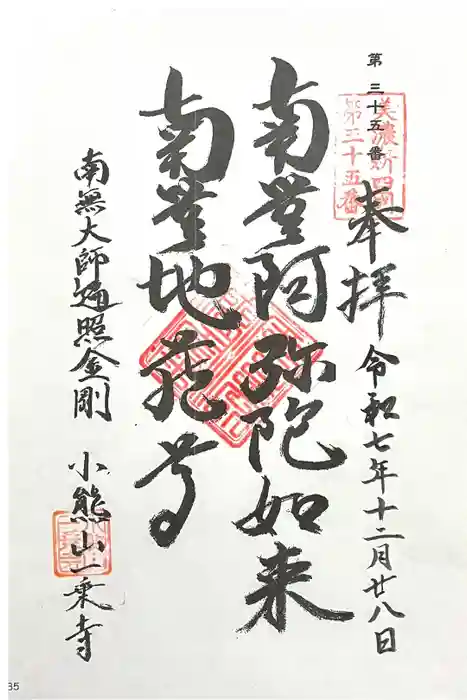 第三十五番
美濃新四国
第三十五番
奉拝 令和七年十二月廿八日
南無阿弥陀如来
南無地蔵尊
南無大師遍照金剛 小熊山一乗寺
35